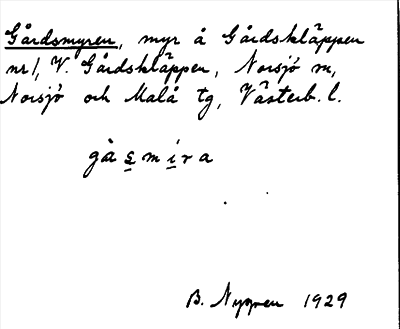 Gårdsmyren, myr å Gårdskläppen
nr 1, V. Gårdskläppen, Norsjö sn,
Norsjö och Malå tg, Västerb. l.
gåsmira
B. Nygren 1929